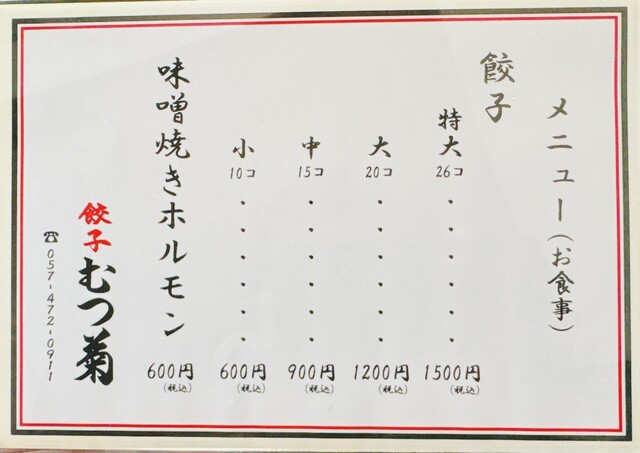 メニュー(お食事)
餃子
特大 26コ ・・・・・・ 1500円(税込)
大 20コ ・・・・・・ 1200円(税込)
中 15コ ・・・・・・ 900円(税込)
小 10コ ・・・・・・ 600円(税込)
味噌焼きホルモン 600円(税込)
餃子むつ菊
☎057-472-0911